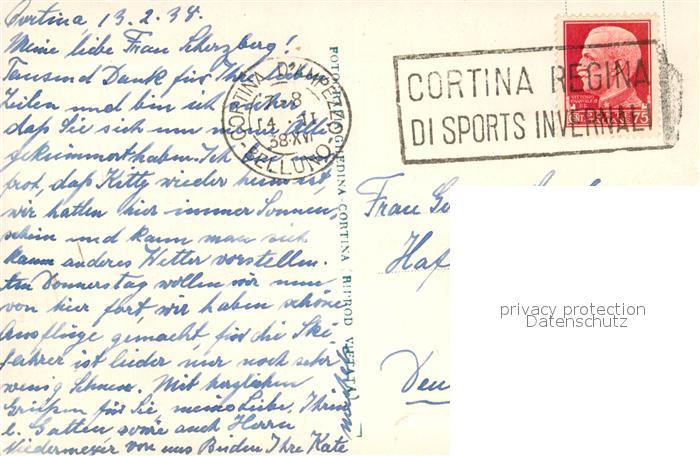 Cortina, 13.2.38.
Meine liebe Frau Scherzberg!
Tausend Dank für Ihre lieben
Zeilen und bin ich sicher
daß Sie sich um meine
gekümmert haben. Ich
daß Kitty wieder
wir hatten hier immer Sonnen-
schein und kann man sich
kaum anderes Wetter vorstellen.
Donnerstag wollen wir nun
von hier fort, wir haben schöne
Ausflüge gemacht, für die Ski-
fahrer ist leider nur noch sehr
wenig Schnee. Mit herzlichen
Grüßen für Sie, meine Liebe, Ihren
l. Gatten sowie auch Herrn
Niedermeyer von uns Beiden Ihre Kate
CORTINA D'AMPEZZO
8
14.II
38.XVI
BELLUNO
FOTO GHEDINA-CORTINA (RIPROD. VIETATA)
CORTINA REGINA
DI SPORTS INVERNALI
CENT. 75
Frau
Haf
Deu
privacy protection
Datenschutz